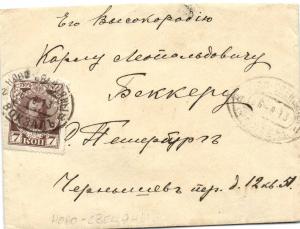 Его Высокородію
Карлу Леопольдовичу
Беккеру
С. Петербургъ
Чернышевъ пер. д. 12 кв. 51
7 КОП 7
НОВО-СВЕНЦЯН